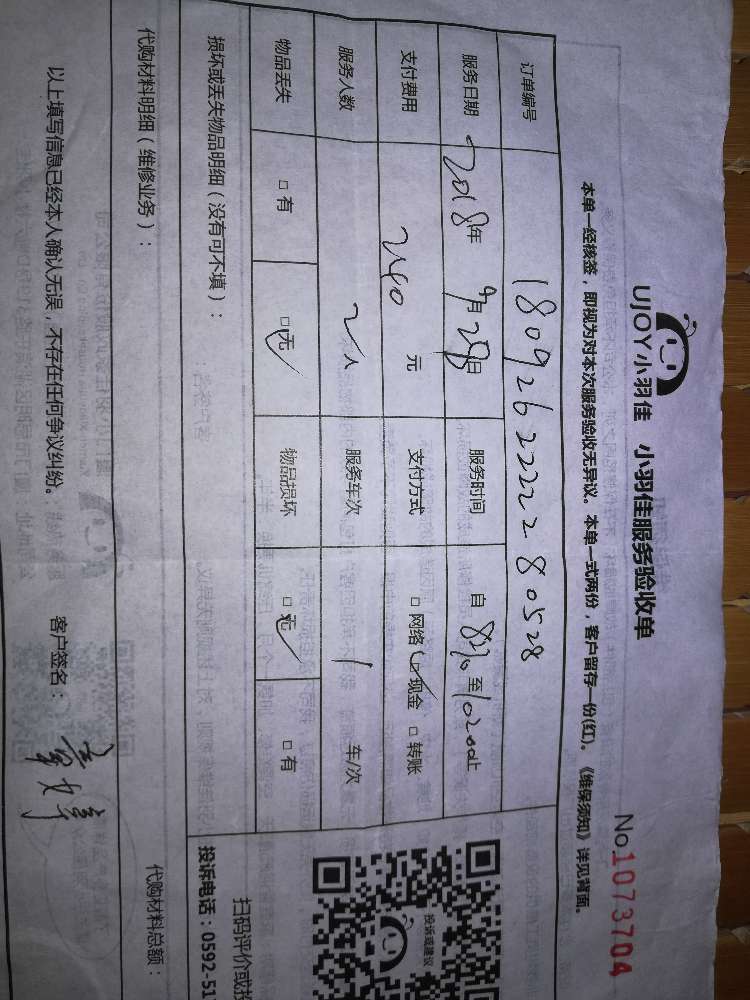 UJOY小羽佳 小羽佳服务验收单
No.1073704
本单一经核签，即视为对本次服务验收无异议。本单一式两份，客户留存一份(红)。《维保须知》详见背面。
订单编号 180926222280528
服务日期 2018年9月29日 服务时间 自 至 止
支付费用 240元 支付方式 □网络 □现金 □转账
服务人数 2人 服务车次 1 车/次
物品丢失 □有 □无 物品损坏 □无 □有
损坏或丢失物品明细（没有可不填）：
代购材料明细（维修业务）： 代购材料总额：
以上填写信息已经本人确认无误，不存在任何争议纠纷。 客户签名：
投诉或建议
扫码评价或投
投诉电话：0592-51